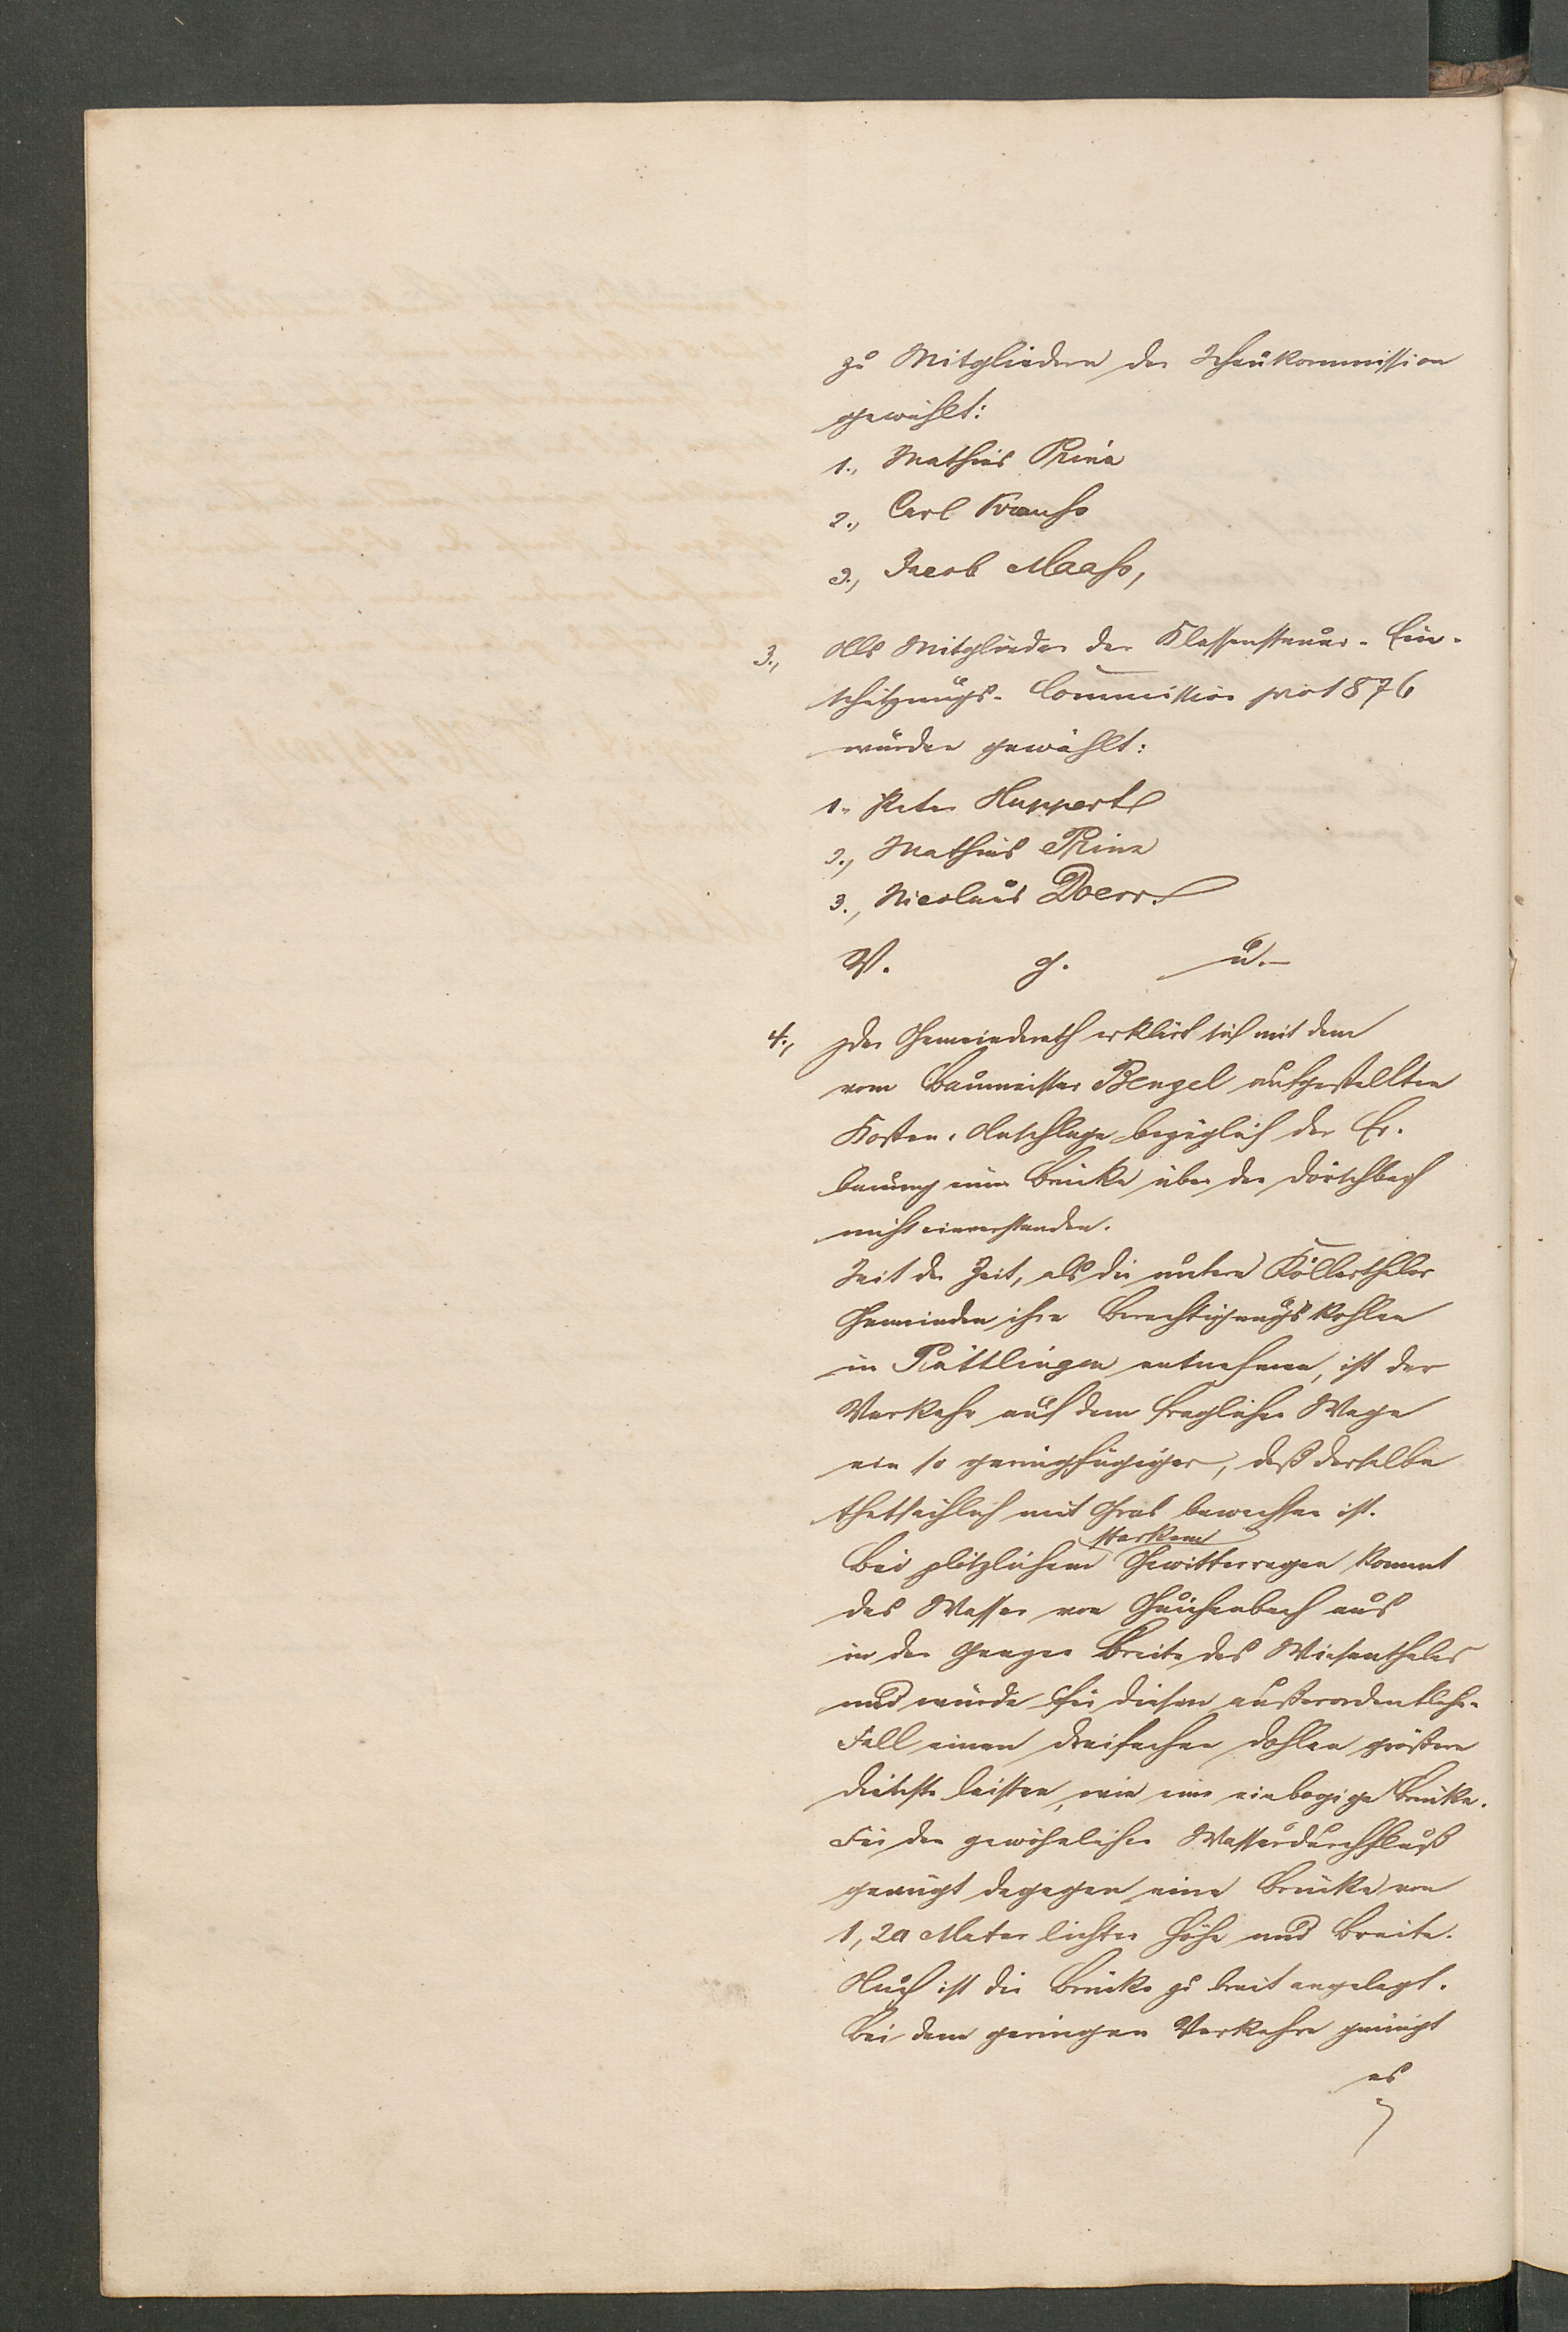 zu Mitgliedern der Schaukommission
gewählt:
1., Mathias Prinz
2., Carl Krauß
3., Jacob Maaß,
3., Als Mitglieder der Klassensteuer-Ein-
schätzungs-Commission pro 1876
wurden gewählt:
1. Peter Huppert
2., Mathias Prinz
3., Nicolaus Doerr.
V. g. u.-
4., Der Gemeinderath erklärt sich mit dem
vom Baumeister Bengel aufgestellten
Kosten-Anschlage bezüglich der Er-
bauung einer Brücke über den
nicht einverstanden.
Seit der Zeit, als die untern Köllerthaler
Gemeinden ihre Berechtigungskohlen
in Püttlingen entnehmen, ist der
Verkehr auf dem fraglichen Wege
ein so geringfügiger, daß derselbe
thatsächlich mit Gras bewachsen ist.
Bei plötzlichem starkem Gewitterregen kommt
das Wasser von Guichenbach aus
in der ganzen Breite des Wiesenthales
und würde für diesen außerordentlichen
Fall einen dreifachen Dohlen größere
Dienste leisten, wie eine einbogige Brücke.
Für den gewöhnlichen Wasserdurchfluß
genügt dagegen eine Brücke von
1,20 Meter lichter Höhe und Breite.
Auch ist die Brücke zu breit angelegt.
Bei dem geringen Verkehre genügt
es